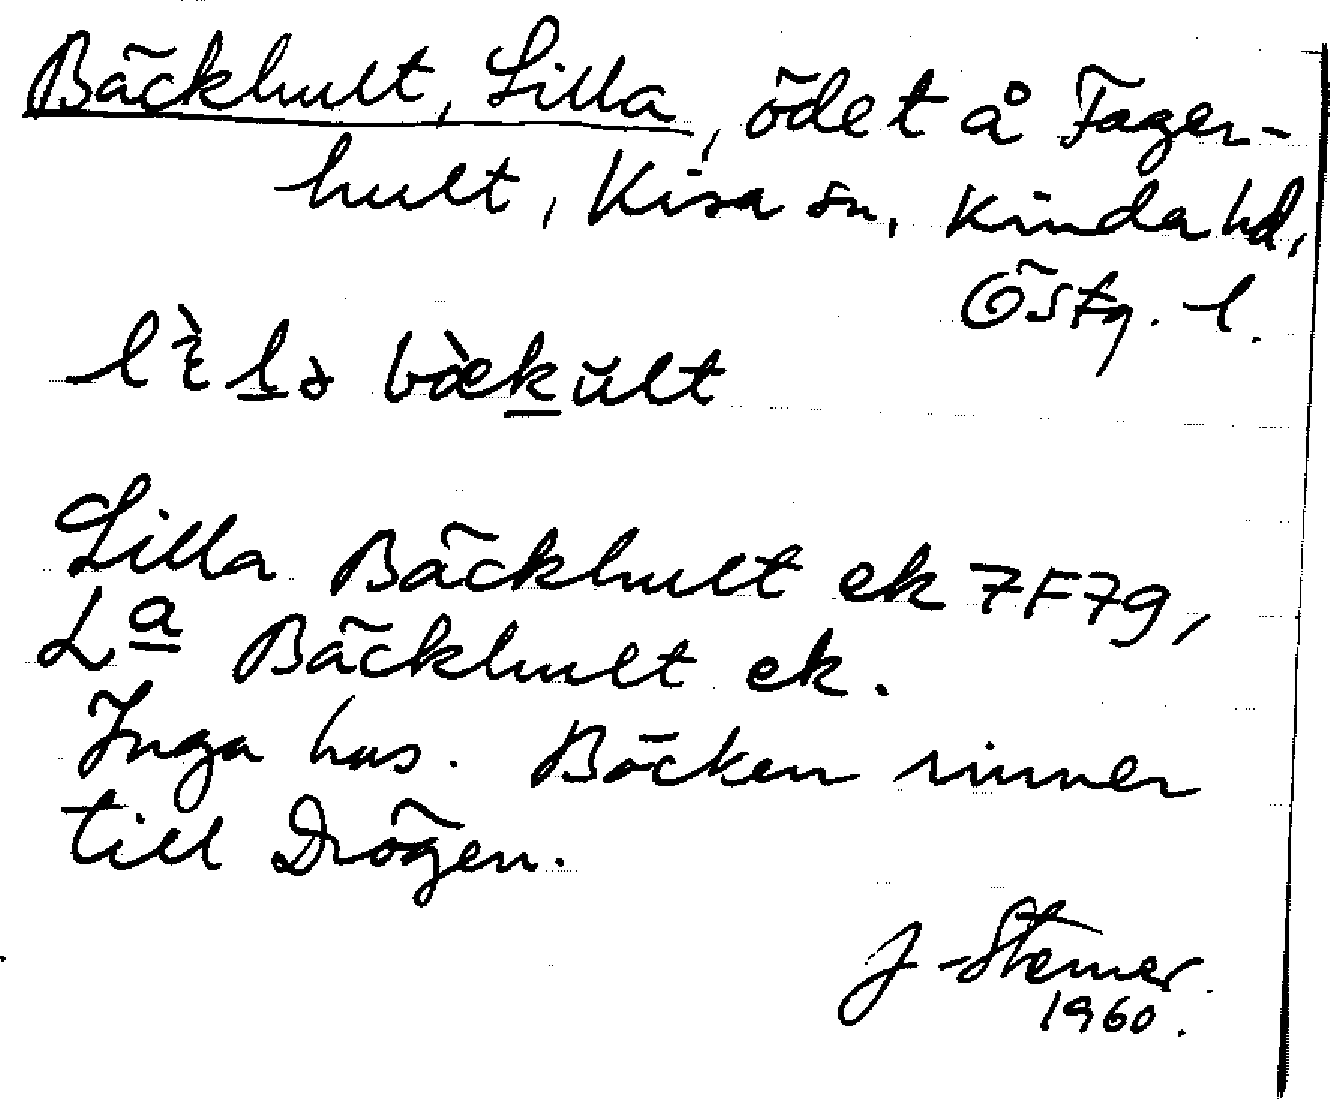 Bäckhult, Lilla, ödet å Fager-
hult, Kisa sn, Kinda hd,
Östg. l.
Lilla Bäckhult ek 7F7g,
La Bäckhult ek.
Inga hus. Bäcken rinner
till Drögen.
1960.